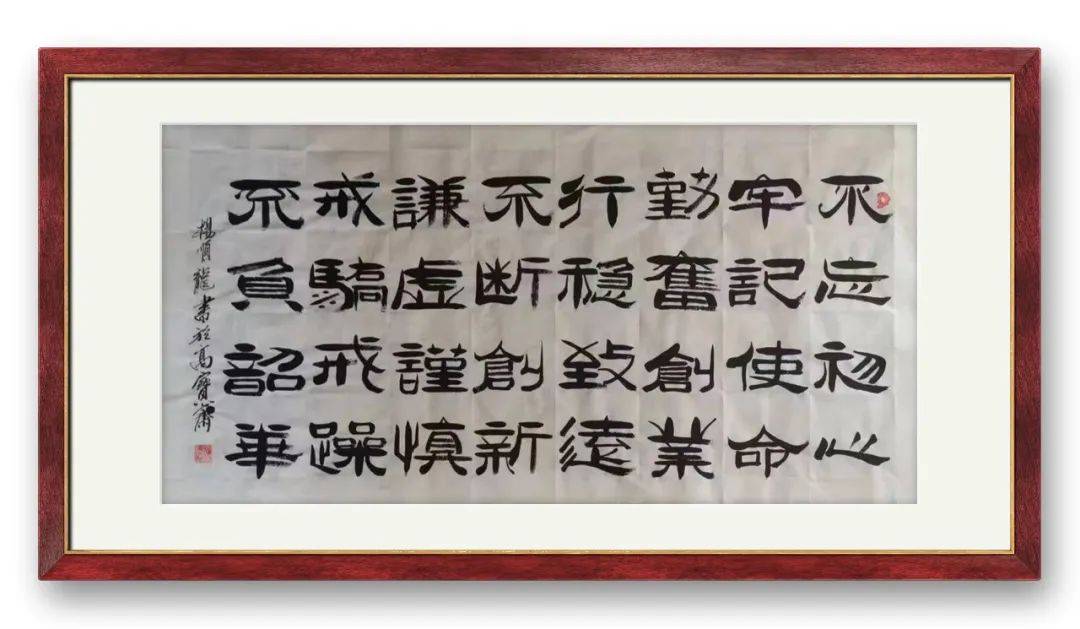 不忘初心
牢記使命
勤奮創業
行穩致遠
不断創新
謙虛謹慎
戒驕戒躁
不負韶華
楊順龍書於高寶齋